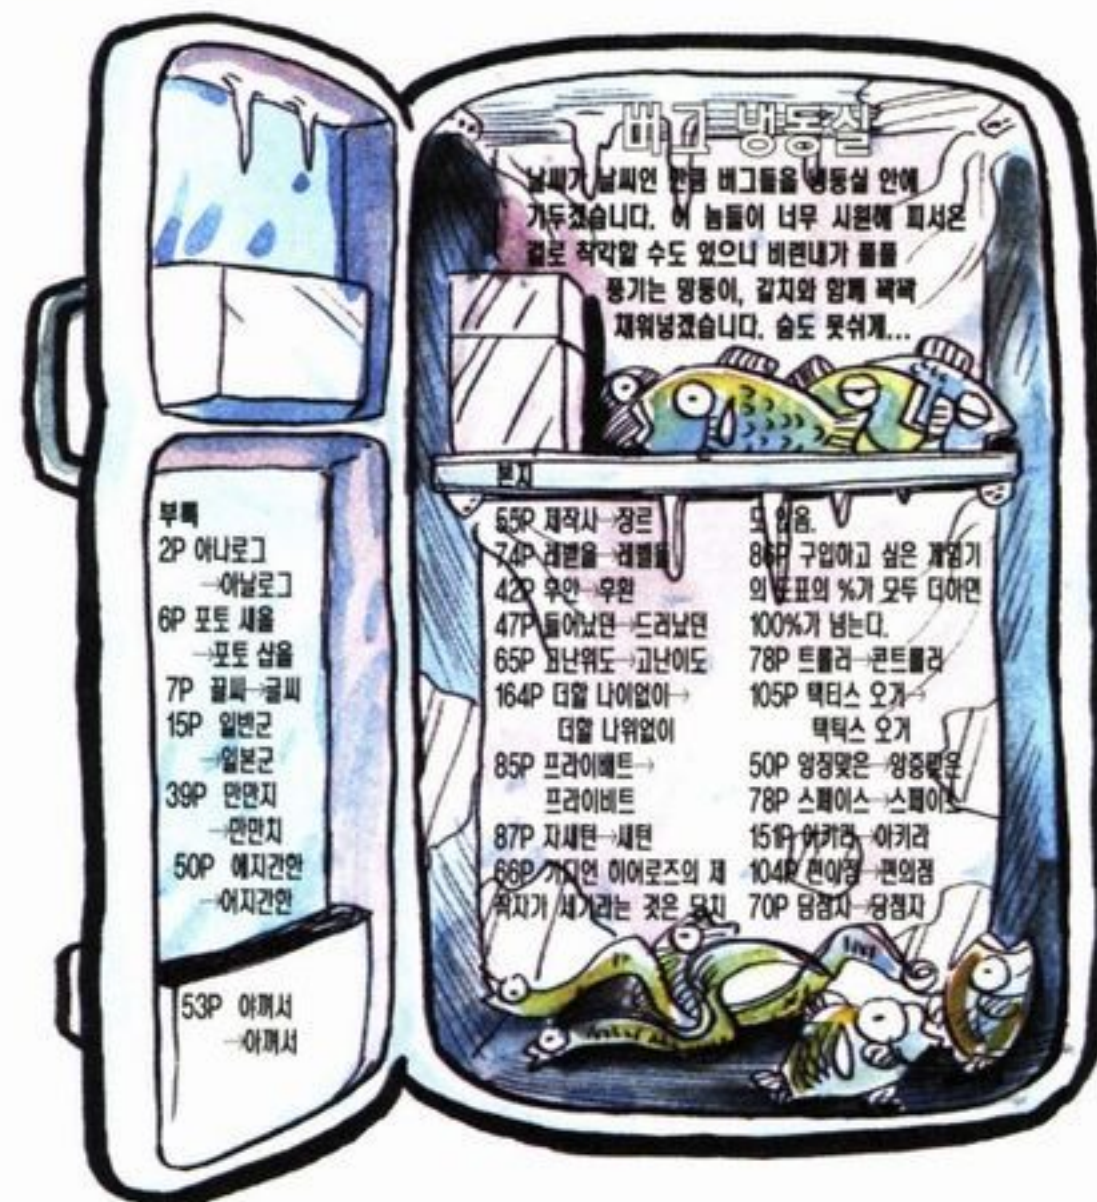 버그 냉동실
날씨가 날씨인 만큼 버그들을 냉동실 안에
가두겠습니다. 이 놈들이 너무 시원해 피서온
걸로 착각할 수도 있으니 비린내가 폴폴
풍기는 망둥이, 갈치와 함께 꽉꽉
채워넣겠습니다. 숨도 못쉬게...
부록
2P 아나로그
→아날로그
6P 포토 새울
→포토 샵을
7P 끌씨→글씨
15P 일반군
→일본군
39P 만만지
→만만치
50P 에지간한
→어지간한
53P 야껴서
→아껴서
본지
55P 제작사→장르
74P 레벨울→레벨들
42P 우안→우완
47P 들어났던→드러났던
65P 고난위도→고난이도
164P 더할 나이없이→
더할 나위없이
85P 프라이배트→
프라이비트
87P 자세턴→세턴
66P 가디언 히어로즈의 제
작자가 세가라는 것은 당치
도 않음.
86P 구입하고 싶은 게임기
의 도표의 %가 모두 더하면
100%가 넘는다.
78P 트롤러→콘트롤러
105P 택티스 오거→
택틱스 오거
50P 앙징맞은→앙증맞은
78P 스페이스→스페이스
151P 아키라
104P 편이점→편의점
70P 담첨자→당첨자